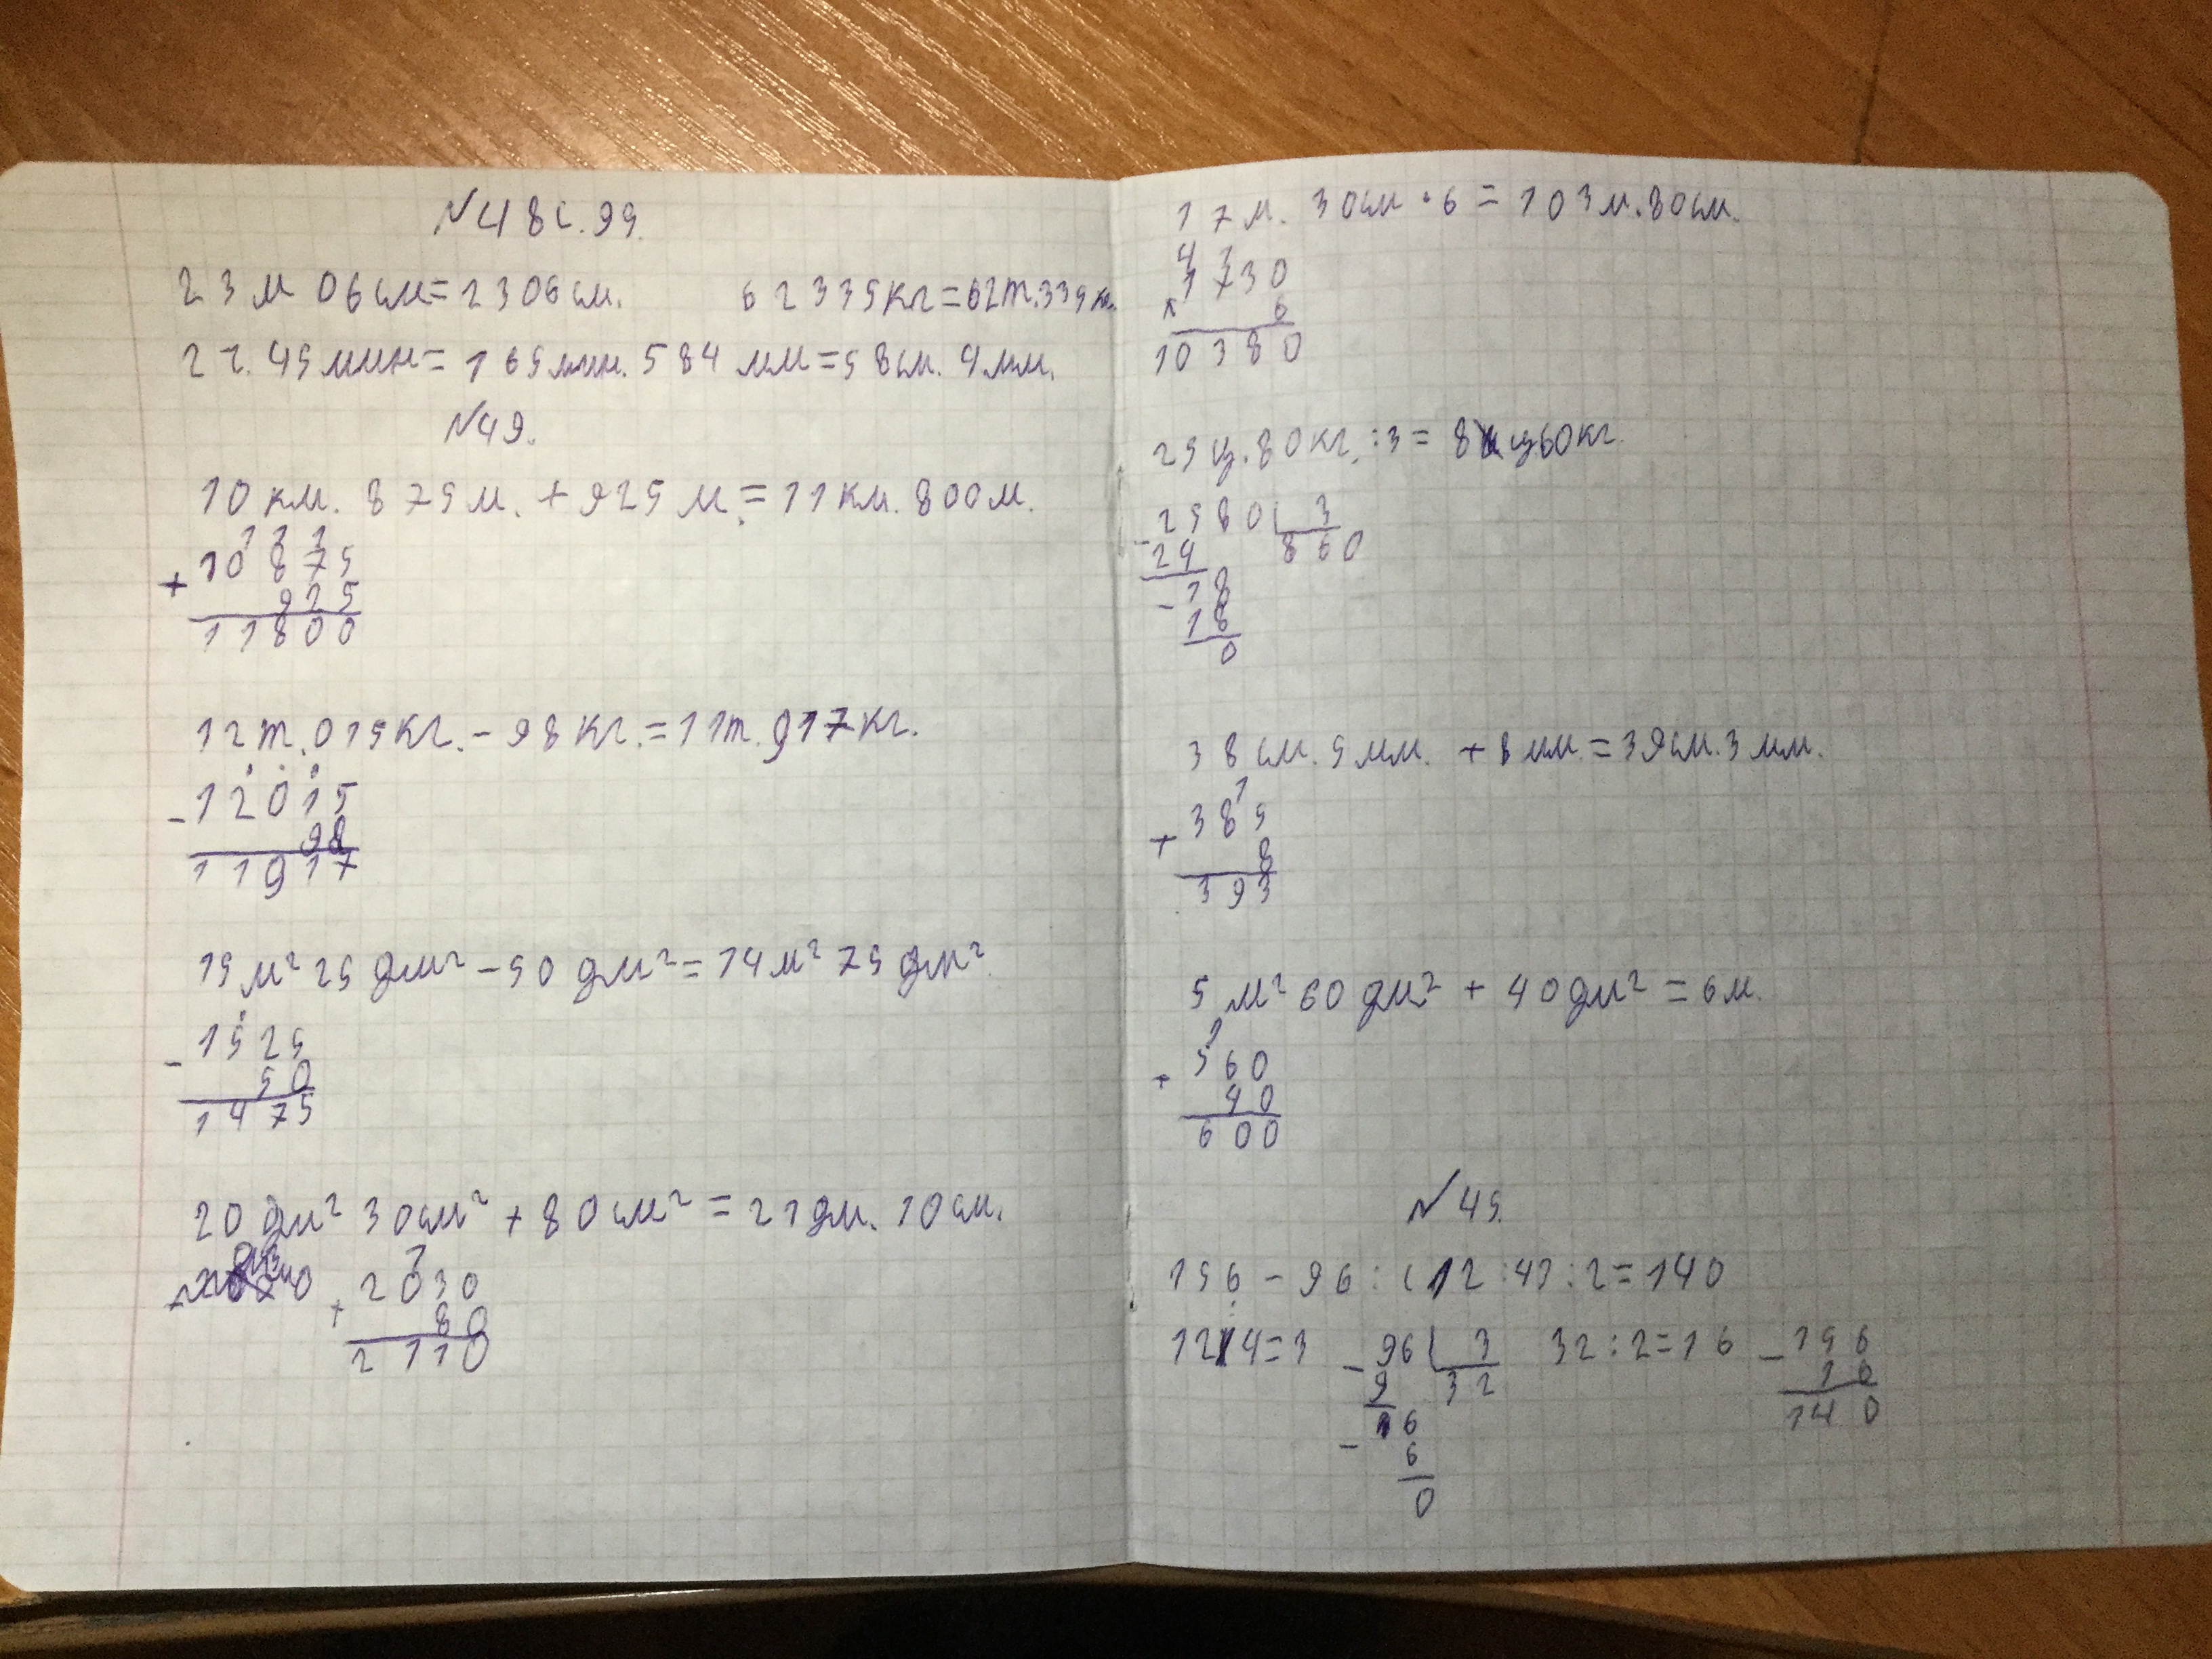 №48 с.99.
23 м 06 см = 2306 см. 62335 кг = 62 т. 335 кг.
2 ч. 45 мин = 165 мин. 584 мм = 58 см. 4 мм.
№49.
10 км. 875 м. + 925 м. = 11 км. 800 м.
1 1 1
10875
+
925
11800
12 т. 015 кг. - 98 кг. = 11 т. 917 кг.
- 12015
98
11917
15 м² 25 дм² - 50 дм² = 14 м² 75 дм²
- 1525
50
1475
20 дм² 30 см² + 80 см² = 21 дм. 10 см.
1
2030
+
80
2110
17 м. 30 см · 6 = 103 м. 80 см.
4 1
1730
× 6
10380
25 ц. 80 кг. : 3 = 8 ц 60 кг.
- 2580 3
24 860
- 18
18
0
38 см. 5 мм. + 8 мм. = 39 см. 3 мм.
1
385
+
8
393
5 м² 60 дм² + 40 дм² = 6 м.
1
560
+
40
600
№45.
156 - 96 : (12 : 4) : 2 = 140
12:4=3 - 96 3 32:2=16 - 156
9 32 16
16 140
- 6
0